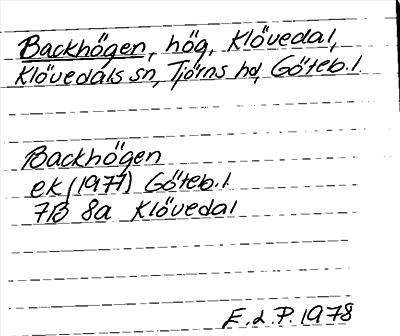 Backhögen, hög, Klövedal,
Klövedals sn, Tjörns hd, Göteb.l.
Backhögen
ek (1977) Göteb.l
7B 8a Klövedal
E.d.P. 1978